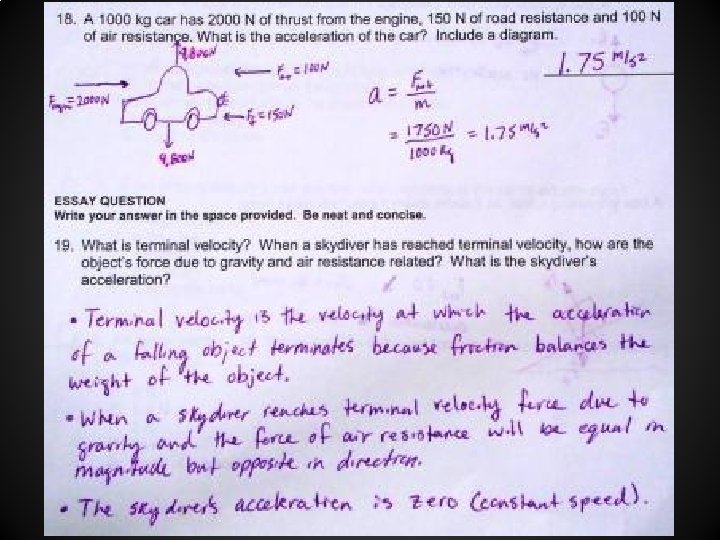 18. A 1000 kg car has 2000 N of thrust from the engine, 150 N of road resistance and 100 N
of air resistance. What is the acceleration of the car? Include a diagram.
1.75 m/s²
9,800N
F air = 100N
F engine = 2000N
F f = 150N
9,800N
a = F net / m
= 1750 N / 1000 kg = 1.75 m/s²
ESSAY QUESTION
Write your answer in the space provided. Be neat and concise.
19. What is terminal velocity? When a skydiver has reached terminal velocity, how are the
object's force due to gravity and air resistance related? What is the skydiver's
acceleration?
• Terminal velocity is the velocity at which the acceleration
of a falling object terminates because friction balances the
weight of the object.
• When a skydiver reaches terminal velocity force due to
gravity and the force of air resistance will be equal in
magnitude but opposite in direction.
• The skydiver's acceleration is zero (constant speed).